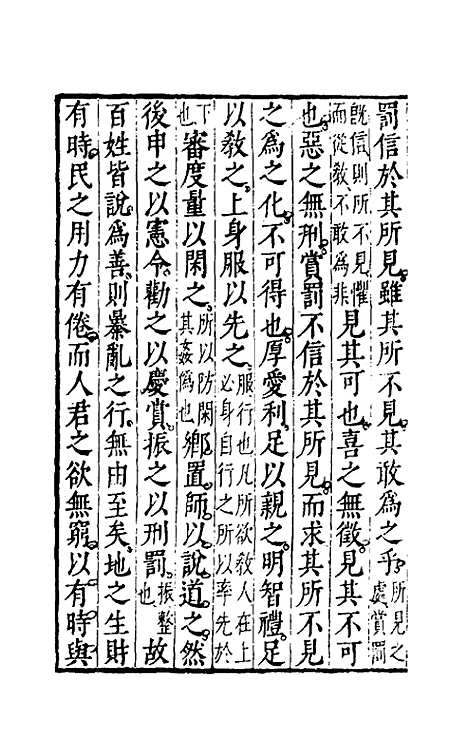 罰信於其所見雖其所不見其敢爲之乎所見之處賞罰
旣信則所不見懼而從敎不敢爲非見其可也喜之無徵見其不可
也惡之無刑賞罰不信於其所見而求其所不見
之爲之化不可得也厚愛利足以親之明智禮足
以敎之上身服以先之服行也凡所欲敎人在上必身自行之所以率先於
下也審度量以閑之所以防閑其姦僞也鄉置師以說道之然
後申之以憲令勸之以慶賞振之以刑罰振整也故
百姓皆說爲善則暴亂之行無由至矣地之生財
有時民之用力有倦而人君之欲無窮以有時與